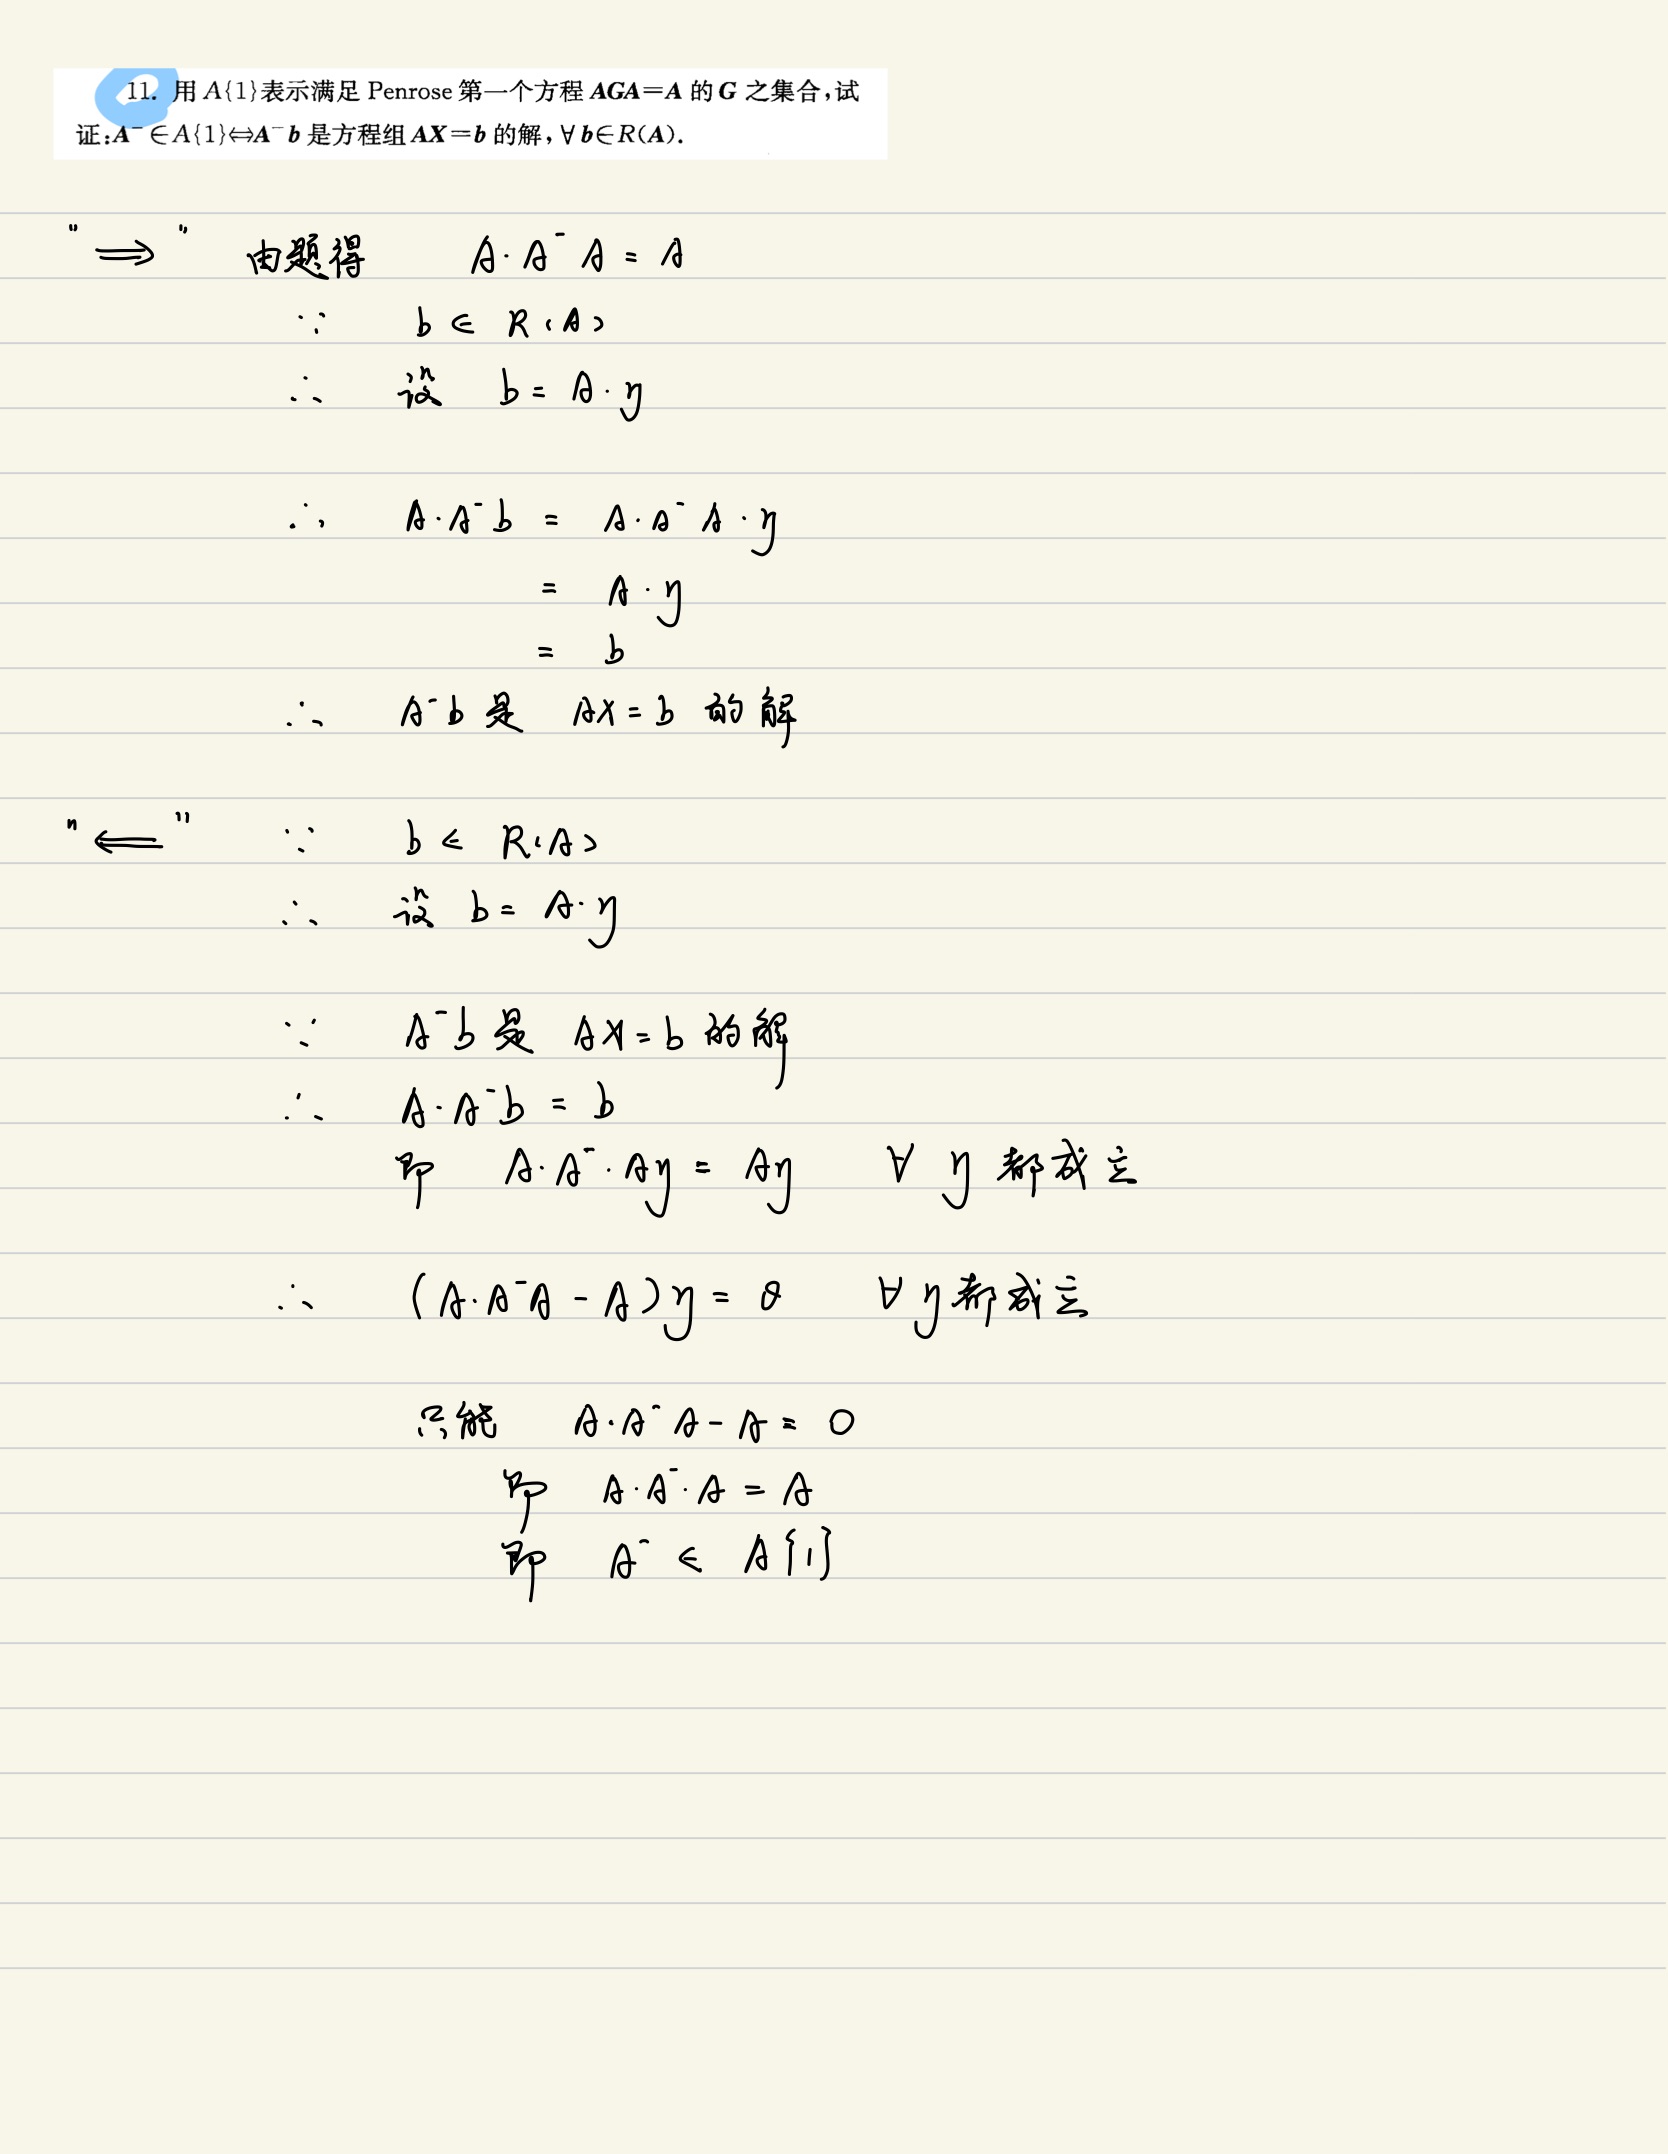 11. 用 A{1}表示满足 Penrose 第一个方程 AGA=A 的 G 之集合,试
证:A⁻∈A{1}⇔A⁻b 是方程组 AX=b 的解,∀b∈R(A).
"⟹" 由题得 A·A⁻A = A
∵ b ∈ R(A)
∴ 设 b = A·y
∴ A·A⁻b = A·A⁻A·y
= A·y
= b
∴ A⁻b 是 AX=b 的解
"⟸" ∵ b ∈ R(A)
∴ 设 b = A·y
∵ A⁻b 是 AX=b 的解
∴ A·A⁻b = b
即 A·A⁻·Ay = Ay ∀ y 都成立
∴ (A·A⁻A - A)y = θ ∀ y 都成立
只能 A·A⁻A - A = 0
即 A·A⁻·A = A
即 A⁻ ∈ A{1}